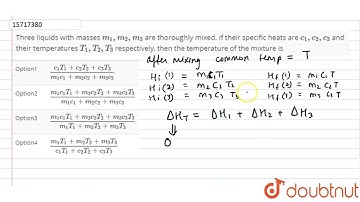 15717380
Three liquids with masses m₁, m₂, m₃ are thoroughly mixed. If their specific heats are c₁, c₂, c₃ and
their temperatures T₁, T₂, T₃ respectively, then the temperature of the mixture is
Option1 (c₁T₁ + c₂T₂ + c₃T₃)/(m₁c₁ + m₂c₂ + m₃c₃)
Option2 (m₁c₁T₁ + m₂c₂T₂ + m₃c₃T₃)/(m₁c₁ + m₂c₂ + m₃c₃)
Option3 (m₁c₁T₁ + m₂c₂T₂ + m₃c₃T₃)/(m₁T₁ + m₂T₂ + m₃T₃)
Option4 (m₁T₁ + m₂T₂ + m₃T₃)/(c₁T₁ + c₂T₂ + c₃T₃)
after mixing common temp = T
Hi(1) = m₁C₁T₁ Hf(1) = m₁C₁T
Hi(2) = m₂C₂T₂ Hf(2) = m₂C₂T
Hi(3) = m₃C₃T₃ Hf(3) = m₃C₃T
ΔH_T = ΔH₁ + ΔH₂ + ΔH₃
⇓
0
doubtnut